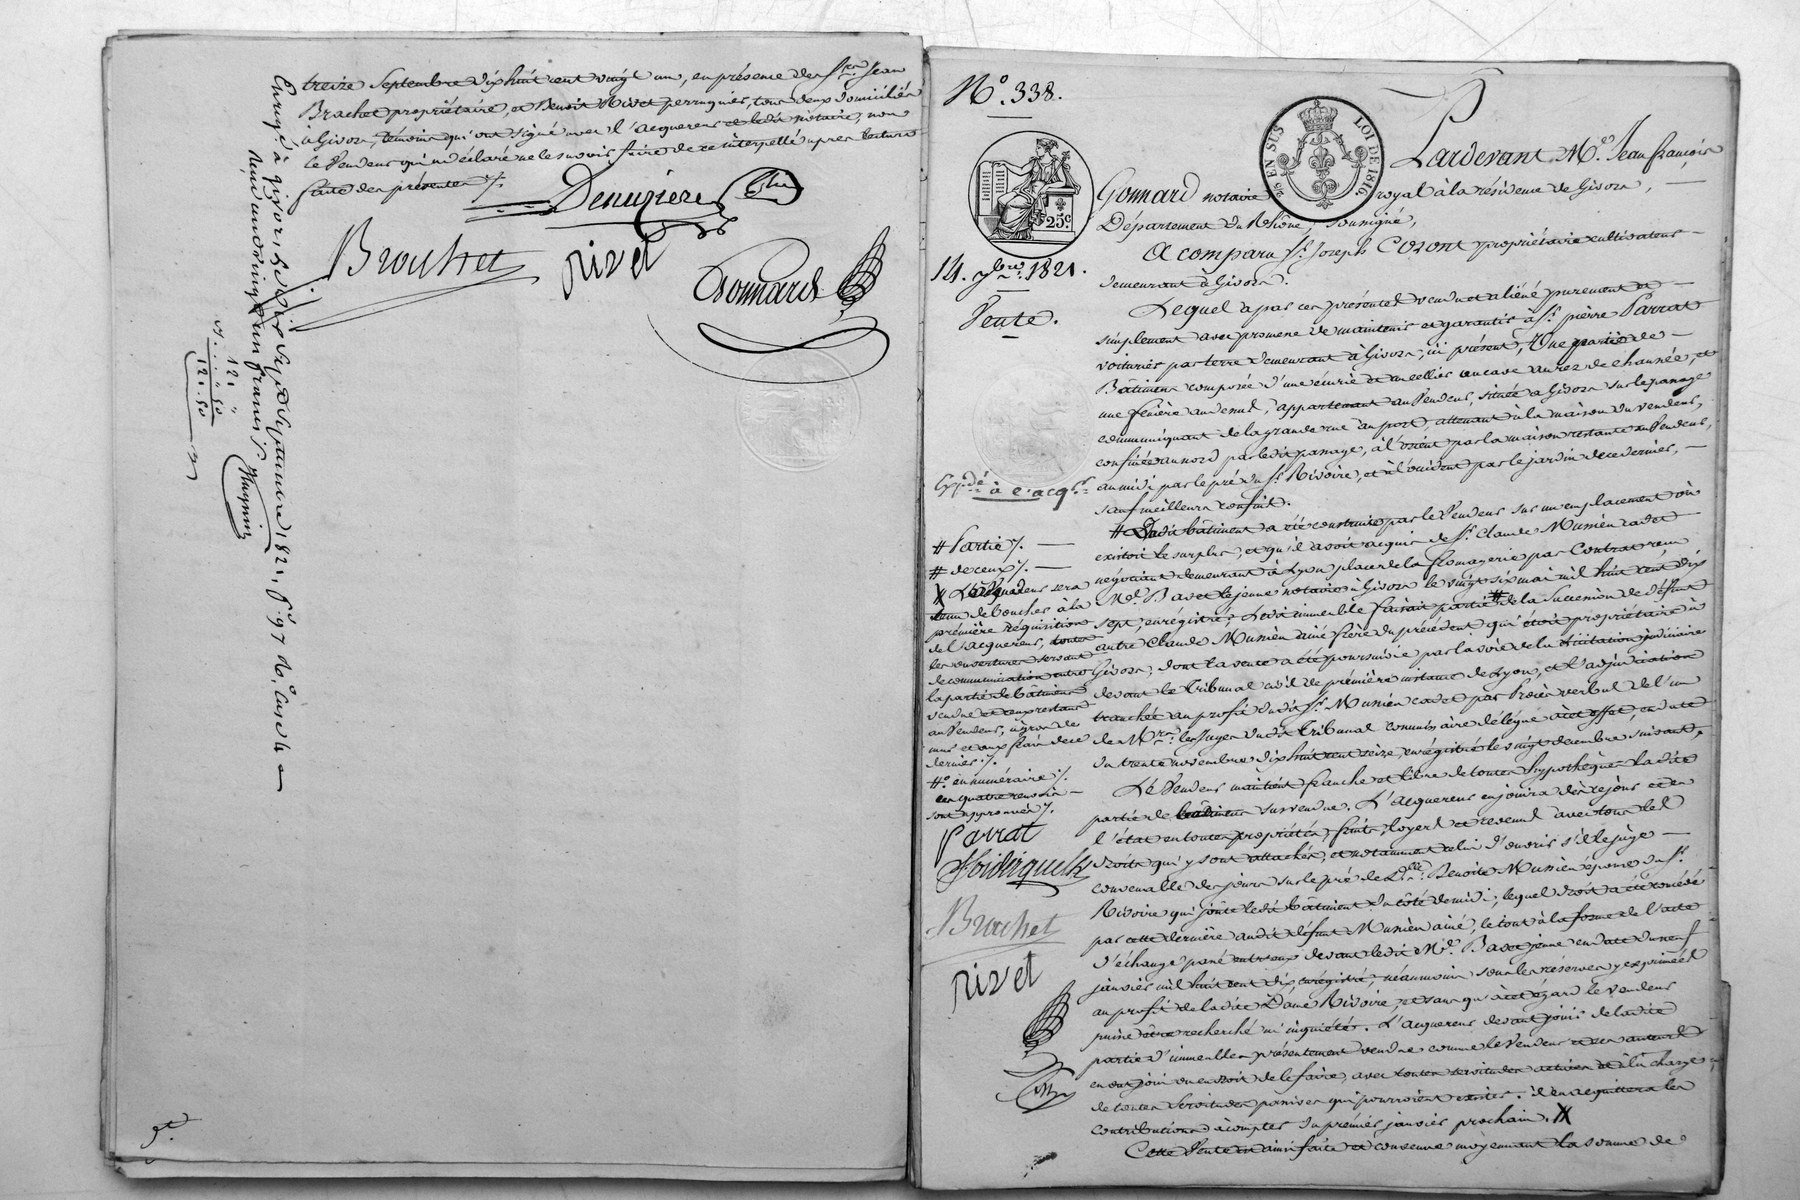 treize Septembre dix huit cent vingt un, en présence des Srs Jean
Brachet propriétaire, et Benoit Rivet perruquier, tous deux domiciliés
à Givors, témoins qui ont signé avec l'acquereur et ledit notaire, non
le Vendeur qui a déclaré ne le savoir faire de ce interpellé après lecture
faite des présentes ./.
Denuzière
Brachet
rivet
Gonnard
Enregé. à givors, le dix Septembre 1821, fo. 97 Vo. Case 4
reçu
12.
" 50
12. 50
No. 338.
2/5 EN SUS
LOI DE 1816.
25c.
14. 7bre. 1821.
Vente.
Expdé
à l'acqr
Pardevant Me. Jean françois
Gonnard notaire royal à la résidence de Givors,
Département du Rhône, soussigné,
A comparu Sr. Joseph Coront propriétaire cultivateur
demeurant à Givors.
Lequel a par ces présentes vendu et aliéné purement et
simplement avec promesse de maintenir et garantir à Sr. pierre Parrat
voiturier par terre demeurant à Givors, ici présent, Une partie de
Bâtiment composée d'une écurie et un cellier ou cave au rez de chaussée, et
une fenière au dessus, appartenant au Vendeur, située à Givors sur le passage
communiquant de la grande rue au port, attenant à la maison du vendeur,
confinée au nord par ledit passage, à l'orient par la maison restante au Vendeur,
au midi par le pré du Sr. Rivoire, et à l'occident par le jardin de ce dernier,
sauf meilleurs confins.
# Ledit bâtiment a été construite par le Vendeur sur un emplacement où
existoit le surplus, et qu'il avoit acquis de Sr. Claude Mussien cadet
négociant demeurant à Lyon place de la fromagerie par Contrat reçu
Me. Bavet le jeune notaire à Givors le vingt six mai mil huit cent dix
sept, enregistré; Ledit immeuble faisait partie # de la succession de défunt
autre Claude Mussien ainé frère du précédent qui étoit propriétaire à
Givors, dont la vente a été poursuivie par la voie de la licitation judiciaire
devant le tribunal civil de première instance de Lyon, et l'adjudication
tranchée au profit dudit Sr. Mussien cadet par Procès verbal de l'un
de Mrs. les Juges dudit Tribunal commissaire délégué à cet effet, en date
du trente novembre dix huit cent seize, enregistré le vingt decembre suivant.
Le Vendeur maintient franche et libre de toutes hypothèques ladite
partie de bâtiment susvendue. L'acquereur en jouira dès ce jour et en
l'état en toutes propriétés, fruits, loyers et revenus avec tous les
droits qui y sont attachés, et notamment celui d'ouvrir s'il le juge
convenable des jours sur le pré de Delle. Benoite Mussien épouse du Sr.
Rivoire qui joûte ledit bâtiment du côté de midi; lequel droit a été concédé
par cette dernière audit défunt Mussien ainé, le tout à la forme de l'acte
d'échange passé entr'eux devant ledit Me. Bavet jeune en date du neuf
janvier mil huit cent dix, enregistré, néanmoins sous les réserves y exprimées
au profit de ladite Dame Rivoire, et sans qu'à cet égard le vendeur
puisse être recherché ni inquiété. L'acquereur devant jouir de ladite
partie d'immeubles présentement vendue comme le Vendeur et ses auteurs
en ont joui ou eu droit de le faire, avec toutes servitudes actives et à la charge
de toutes servitudes passives qui pourroient exister: il en acquittera les
contributions à compter du premier janvier prochain. X
Cette Vente est ainsi faite et consentie moyennant la somme de
# Partie ./.
# de ceux ./.
X Le Vendeur sera
tenu de boucher à la
première réquisition
de l'acquereur, toutes
les ouvertures servant
de communication entre
la partie de bâtiment
vendue et ceux restant
au Vendeur, à gros de
murs et aux frais de ce
dernier ./.
# en numéraire ./.
ces quatre renvois
sont approuvés ./.
parrat
Brachet
rivet